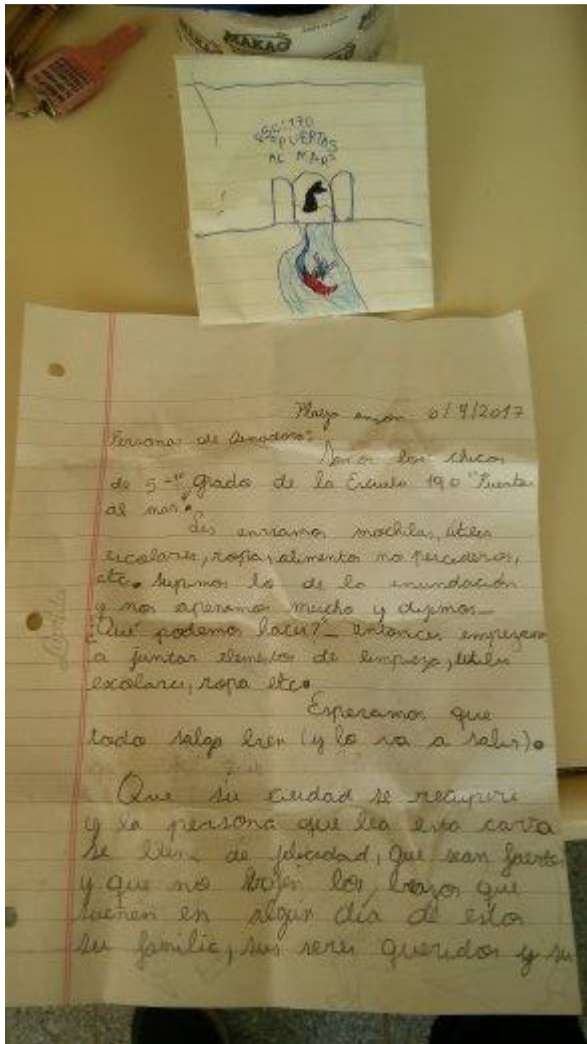 MAKAO
MAKAO
ESC. 190
"PUERTAS
AL MAR"
Playa 6/9/2017
Personas de
Somos los chicos
de 5-to grado de la Escuela 190 "Puertas
al mar".
Les enviamos mochilas, útiles
escolares, ropa, alimentos no perecederos,
etc. Supimos lo de la inundación
y nos apenamos mucho y dijimos-
¿Qué podemos hacer?- entonces
a juntar elementos de limpieza, útiles
escolares, ropa etc.
Esperamos que
todo salga bien (y lo va a salir).
Que su ciudad se recupere
y la persona que lea esta carta
se llene de felicidad, que sean fuertes
y que no bajen los brazos que
sueñen en algún día de estos
su familia, sus seres queridos y su